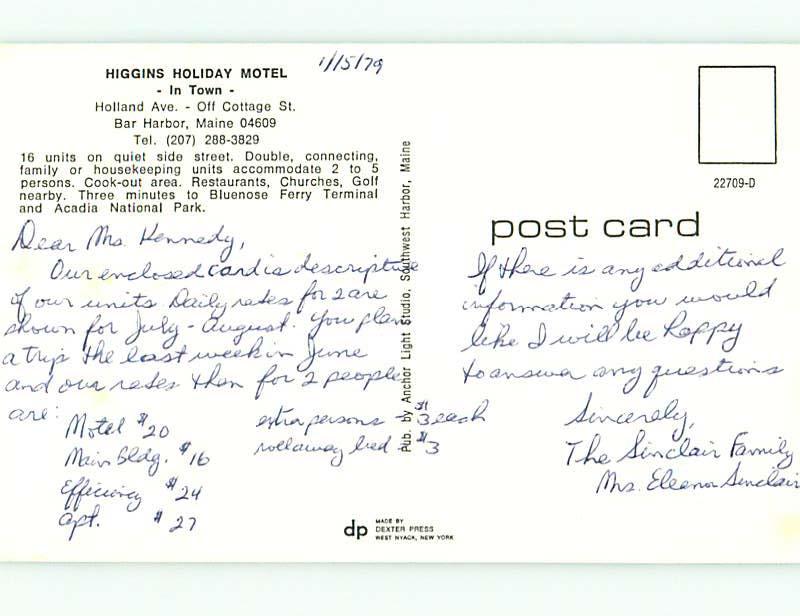 1/15/79
HIGGINS HOLIDAY MOTEL
- In Town -
Holland Ave. - Off Cottage St.
Bar Harbor, Maine 04609
Tel. (207) 288-3829
16 units on quiet side street. Double, connecting,
family or housekeeping units accommodate 2 to 5
persons. Cook-out area. Restaurants, Churches, Golf
nearby. Three minutes to Bluenose Ferry Terminal
and Acadia National Park.
Dear Ms. Kennedy,
Our enclosed card is descriptive
of our units. Daily rates for 2 are
shown for July - August. You plan
a trip the last week in June
and our rates then for 2 people
are:
Motel $20
Main Bldg. $16
Efficiency $24
apt. $27
extra persons - $3 each
rollaway bed - $3
Pub. by Anchor Light Studio, Southwest Harbor, Maine
22709-D
post card
If there is any additional
information you would
like I will be happy
to answer any questions
Sincerely,
The Sinclair Family
Mrs. Eleanor Sinclair
dp
MADE BY
DEXTER PRESS
WEST NYACK, NEW YORK